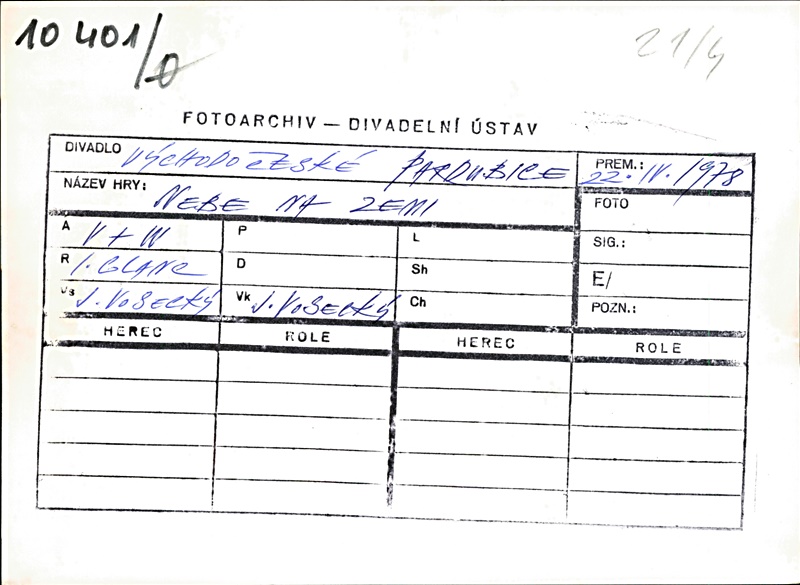 10 401/0
21/4
FOTOARCHIV — DIVADELNÍ ÚSTAV
DIVADLO VÝCHODOČESKÉ PARDUBICE
PREM.: 22. IV. 1978
NÁZEV HRY: NEBE NA ZEMI
FOTO
A V + W P L
SIG.:
R I. GLANC D Sh
E/
Vs J. VOSECKÝ Vk J. VOSECKÝ Ch
POZN.:
HEREC ROLE HEREC ROLE